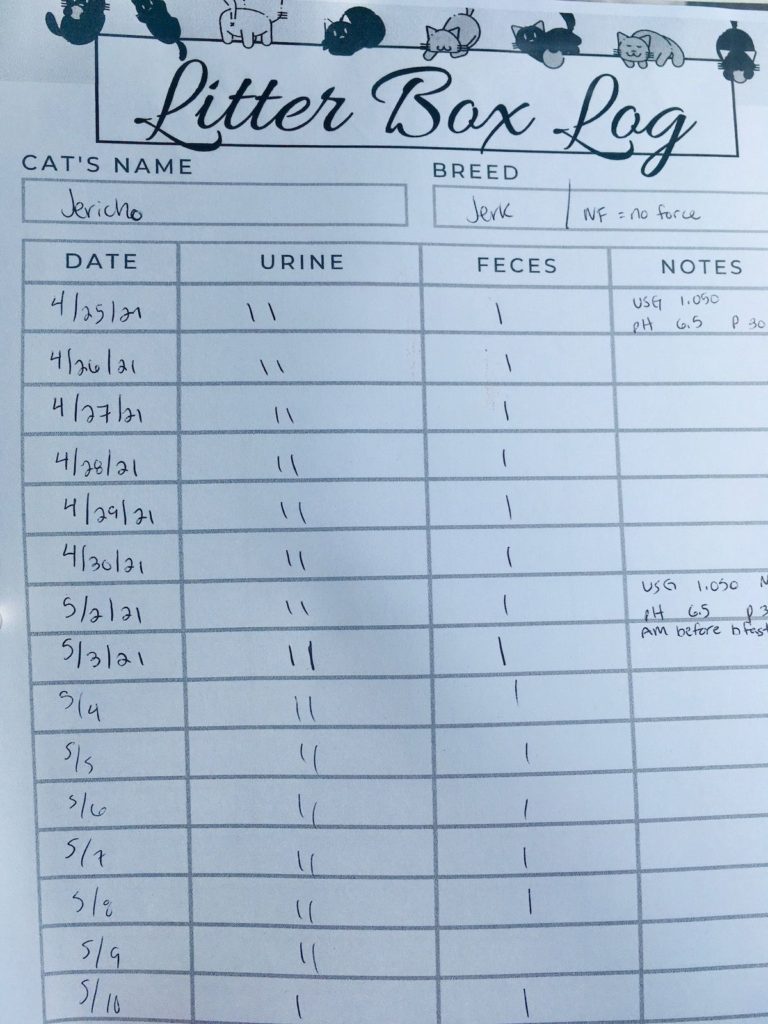 Litter Box Log
CAT'S NAME BREED
Jericho Jerk | NF = no force
DATE URINE FECES NOTES
4/25/21 11 1 USG 1.050
pH 6.5 P 30
4/26/21 11 1
4/27/21 11 1
4/28/21 11 1
4/29/21 11 1
4/30/21 11 1
5/2/21 11 1 USG 1.050 N
pH 6.5 P 3
AM before bfast
5/3/21 11 1
5/4 11 1
5/5 11 1
5/6 11 1
5/7 11 1
5/8 11 1
5/9 11
5/10 1 1